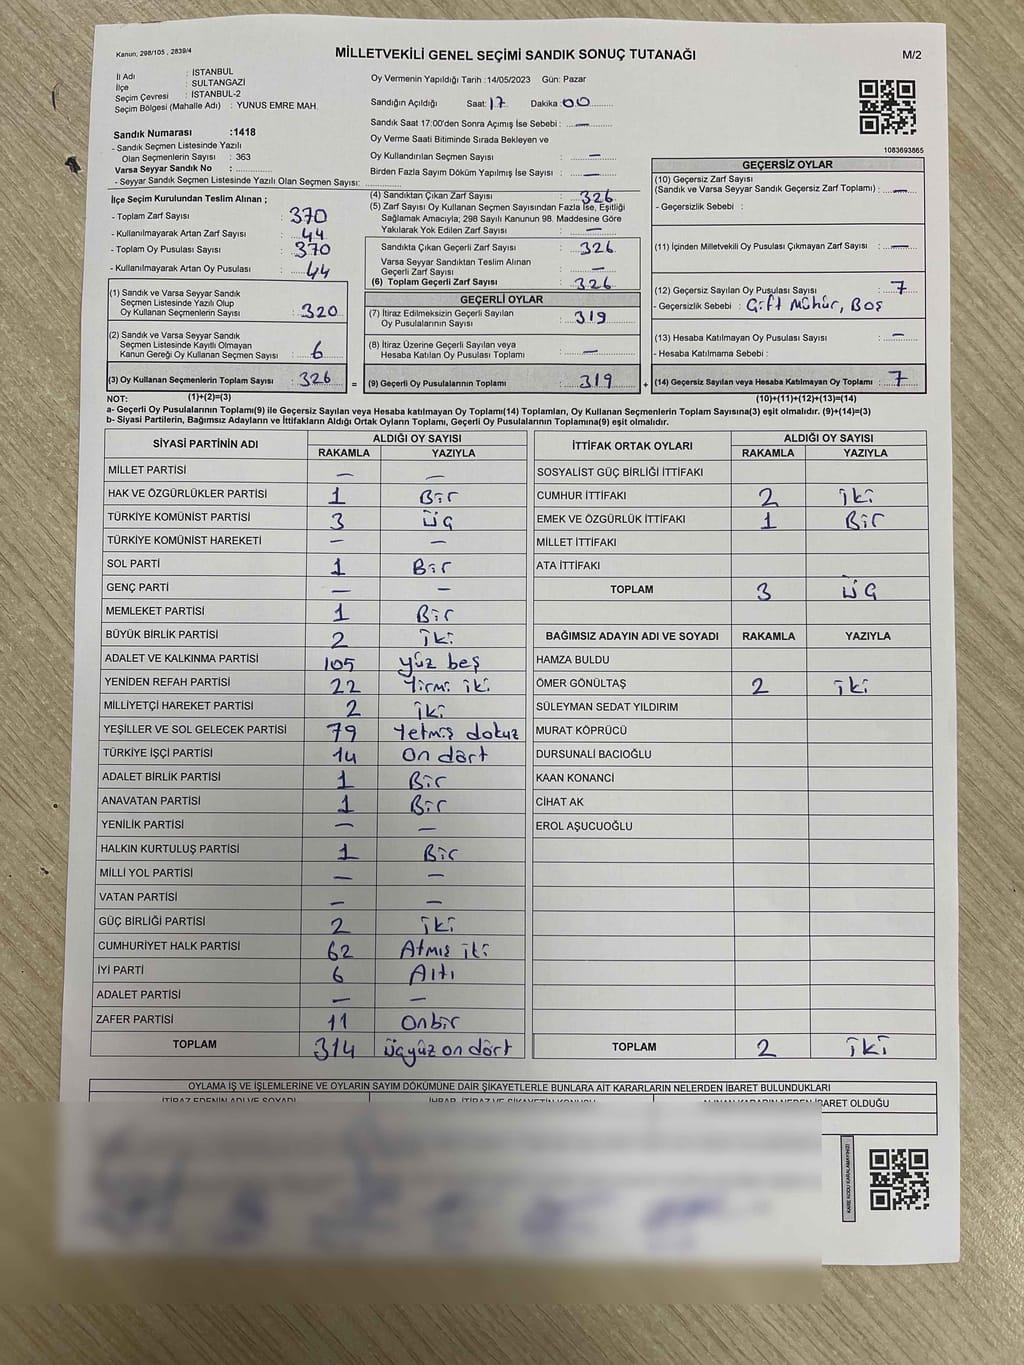 Kanun; 298/105 , 2839/4
MİLLETVEKİLİ GENEL SEÇİMİ SANDIK SONUÇ TUTANAĞI
M/2
İl Adı : İSTANBUL
İlçe : SULTANGAZİ
Seçim Çevresi : İSTANBUL-2
Seçim Bölgesi (Mahalle Adı) : YUNUS EMRE MAH.
Sandık Numarası :1418
- Sandık Seçmen Listesinde Yazılı
Olan Seçmenlerin Sayısı : 363
Varsa Seyyar Sandık No :
- Seyyar Sandık Seçmen Listesinde Yazılı Olan Seçmen Sayısı:
Oy Vermenin Yapıldığı Tarih :14/05/2023 Gün: Pazar
Sandığın Açıldığı Saat: 17 Dakika: 00
Sandık Saat 17:00'den Sonra Açımış İse Sebebi : —
Oy Verme Saati Bitiminde Sırada Bekleyen ve
Oy Kullandırılan Seçmen Sayısı : —
Birden Fazla Sayım Döküm Yapılmış İse Sayısı : —
1083693865
İlçe Seçim Kurulundan Teslim Alınan ;
- Toplam Zarf Sayısı : 370
- Kullanılmayarak Artan Zarf Sayısı : 44
- Toplom Oy Pusulası Sayısı : 370
- Kullanılmayarak Artan Oy Pusulası : 44
(1) Sandık ve Varsa Seyyar Sandık
Seçmen Listesinde Yazılı Olup
Oy Kullanan Seçmenlerin Sayısı : 320
(2) Sandık ve Varsa Seyyar Sandık
Seçmen Listesinde Kayıtlı Olmayan
Kanun Gereği Oy Kullanan Seçmen Sayısı : 6
(3) Oy Kullanan Seçmenlerin Toplam Sayısı : 326
(4) Sandıktan Çıkan Zarf Sayısı : 326
(5) Zarf Sayısı Oy Kullanan Seçmen Sayısından Fazla İse, Eşitliği
Sağlamak Amacıyla; 298 Sayılı Kanunun 98. Maddesine Göre
Yakılarak Yok Edilen Zarf Sayısı : —
Sandıkta Çıkan Geçerli Zarf Sayısı : 326
Varsa Seyyar Sandıktan Teslim Alınan
Geçerli Zarf Sayısı : —
(6) Toplam Geçerli Zarf Sayısı : 326
GEÇERLİ OYLAR
(7) İtiraz Edilmeksizin Geçerli Sayılan
Oy Pusulalarının Sayısı : 319
(8) İtiraz Üzerine Geçerli Sayılan veya
Hesaba Katılan Oy Pusulası Toplamı : —
= (9) Geçerli Oy Pusulalarının Toplamı : 319
GEÇERSİZ OYLAR
(10) Geçersiz Zarf Sayısı
(Sandık ve Varsa Seyyar Sandık Geçersiz Zarf Toplamı) : —
- Geçersizlik Sebebi :
(11) İçinden Milletvekili Oy Pusulası Çıkmayan Zarf Sayısı : —
(12) Geçersiz Sayılan Oy Pusulası Sayısı : 7
- Geçersizlik Sebebi : Çift Mühür, Boş
(13) Hesaba Katılmayan Oy Pusulası Sayısı : —
- Hesaba Katılmama Sebebi :
+ (14) Geçersiz Sayılan veya Hesaba Katılmayan Oy Toplamı : 7
NOT: (1)+(2)=(3) (10)+(11)+(12)+(13)=(14)
a- Geçerli Oy Pusulalarının Toplamı(9) ile Geçersiz Sayılan veya Hesaba katılmayan Oy Toplamı(14) Toplamları, Oy Kullanan Seçmenlerin Toplam Sayısına(3) eşit olmalıdır. (9)+(14)=(3)
b- Siyasi Partilerin, Bağımsız Adayların ve İttifakların Aldığı Ortak Oyların Toplamı, Geçerli Oy Pusulalarının Toplamına(9) eşit olmalıdır.
SİYASİ PARTİNİN ADI ALDIĞI OY SAYISI
RAKAMLA YAZIYLA
MİLLET PARTİSİ — —
HAK VE ÖZGÜRLÜKLER PARTİSİ 1 Bir
TÜRKİYE KOMÜNİST PARTİSİ 3 üç
TÜRKİYE KOMÜNİST HAREKETİ — —
SOL PARTİ 1 Bir
GENÇ PARTİ — —
MEMLEKET PARTİSİ 1 Bir
BÜYÜK BİRLİK PARTİSİ 2 iki
ADALET VE KALKINMA PARTİSİ 105 yüz beş
YENİDEN REFAH PARTİSİ 22 Yirmi iki
MİLLİYETÇİ HAREKET PARTİSİ 2 iki
YEŞİLLER VE SOL GELECEK PARTİSİ 79 Yetmiş dokuz
TÜRKİYE İŞÇİ PARTİSİ 14 On dört
ADALET BİRLİK PARTİSİ 1 Bir
ANAVATAN PARTİSİ 1 Bir
YENİLİK PARTİSİ — —
HALKIN KURTULUŞ PARTİSİ 1 Bir
MİLLİ YOL PARTİSİ — —
VATAN PARTİSİ — —
GÜÇ BİRLİĞİ PARTİSİ 2 iki
CUMHURİYET HALK PARTİSİ 62 Atmış iki
İYİ PARTİ 6 Altı
ADALET PARTİSİ — —
ZAFER PARTİSİ 11 Onbir
TOPLAM 314 üçyüz on dört
İTTİFAK ORTAK OYLARI ALDIĞI OY SAYISI
RAKAMLA YAZIYLA
SOSYALİST GÜÇ BİRLİĞİ İTTİFAKI
CUMHUR İTTİFAKI 2 iki
EMEK VE ÖZGÜRLÜK İTTİFAKI 1 Bir
MİLLET İTTİFAKI
ATA İTTİFAKI
TOPLAM 3 üç
BAĞIMSIZ ADAYIN ADI VE SOYADI RAKAMLA YAZIYLA
HAMZA BULDU
ÖMER GÖNÜLTAŞ 2 iki
SÜLEYMAN SEDAT YILDIRIM
MURAT KÖPRÜCÜ
DURSUNALİ BACIOĞLU
KAAN KONANCİ
CİHAT AK
EROL AŞUCUOĞLU
TOPLAM 2 iki
OYLAMA İŞ VE İŞLEMLERİNE VE OYLARIN SAYIM DÖKÜMÜNE DAİR ŞİKAYETLERLE BUNLARA AİT KARARLARIN NELERDEN İBARET BULUNDUKLARI
İTİRAZ EDENİN ADI VE SOYADI İHBAR, İTİRAZ VE ŞİKAYETİN KONUSU ALINAN KARARIN NEDEN İBARET OLDUĞU
KARE KODU KARALAMAYINIZ!